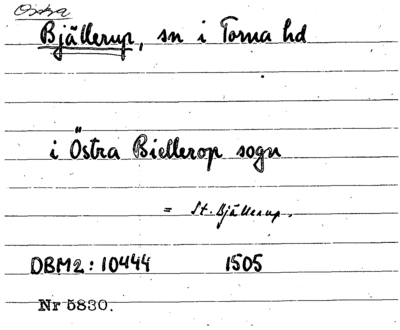 Östra
Bjällerup, sn i Torna hd
i Östra Biellerop sogn
= St. Bjällerup.
DBM2: 10444 1505
Nr 5830.